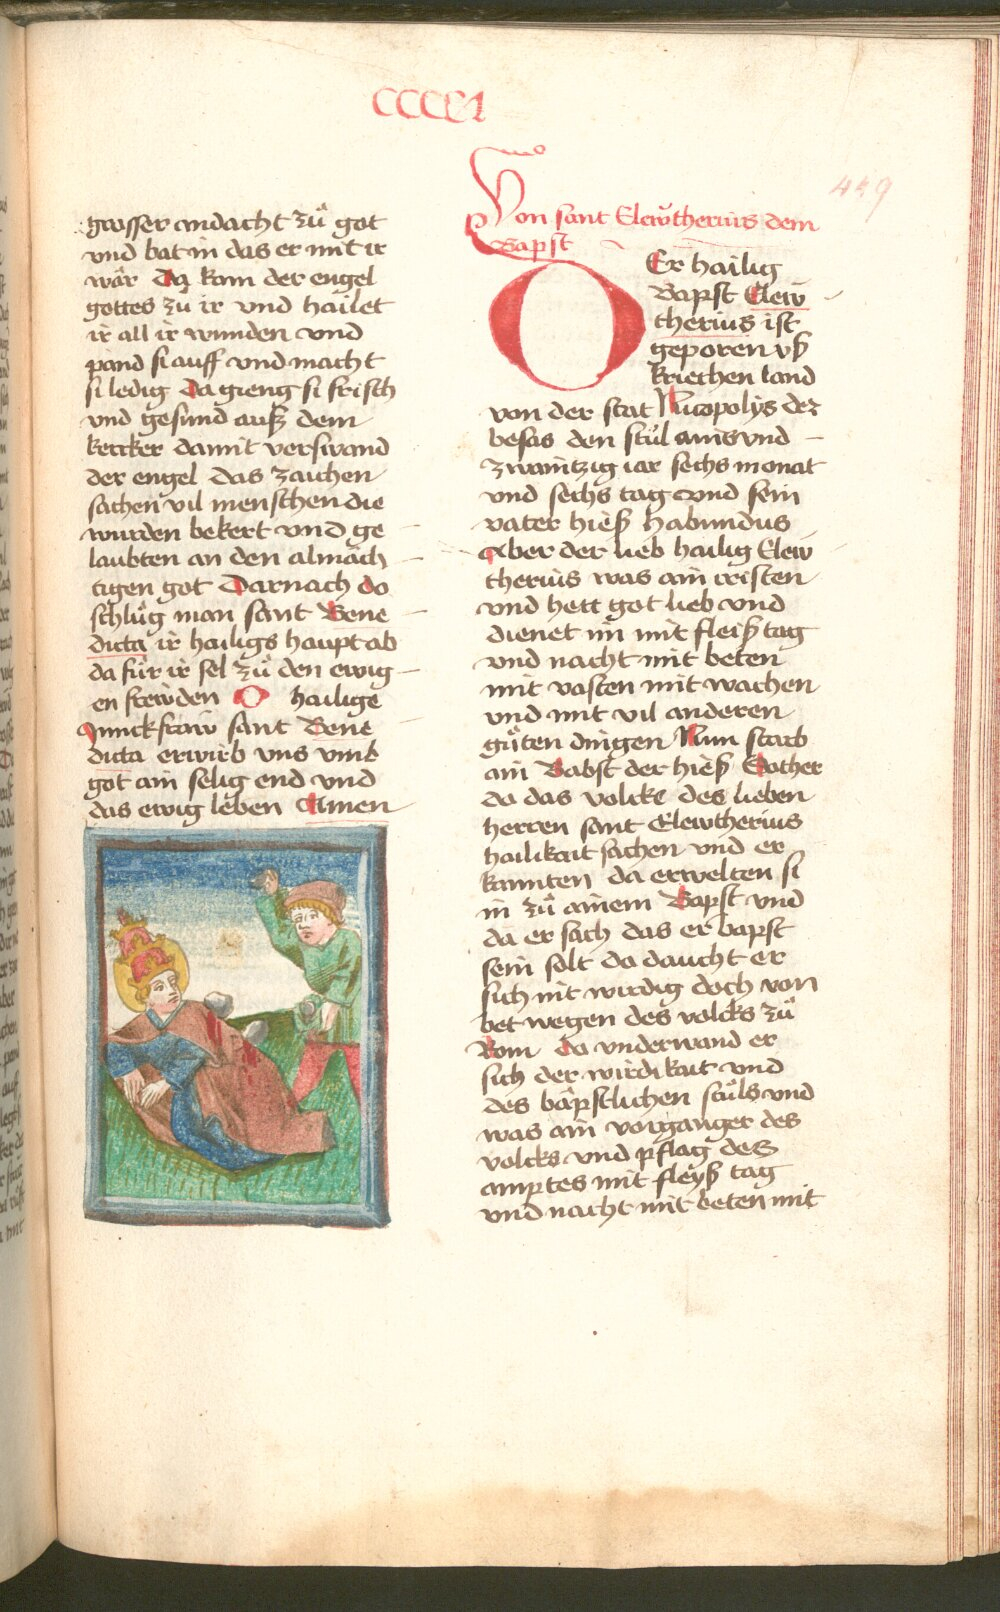 CCCCLI
449
grosser andacht zů got
vnd bat in das er mit ir
wär Da kam der engel
gottes zu ir vnd hailet
ir all ir wunden vnd
pand si auff vnd macht
si ledig Da gieng si frisch
vnd gesund auß dem
kercker damit verswand
der engel das zaichen
sachen vil menschen die
wurden bekert vnd ge
laubten an den almäch
tigen got Darnach do
schlůg man sant Bene
dicta ir hailigs haupt ab
da für ir sel zů den ewig
en frewden O hailige
Junckfraw sant Bene
dicta erwirb vns vmb
got ain selig end vnd
das ewig leben Amen
Von sant Elewtherius dem
Bapst
Er hailig
Bapst Elew
therius ist
geporen vß
kriechen land
von der stat Nicopolys der
besas den stůl ains vnd
zwaintzig iar sechs monat
vnd sechs tag vnd sein
vater hieß Habundus
Aber der lieb hailig Elew
therius was ain cristen
vnd hett got lieb vnd
dienet im mit fleiß tag
vnd nacht mit beten
mit vasten mit wachen
vnd mit vil anderen
gůten dingen Nun starb
ain Babst der hieß Sother
da das volcke des lieben
herren sant Elewtherius
hailikait sachen vnd er
kannten da erwelten si
in zů ainem Bapst vnd
da er sach das er bapst
sein solt do daucht er
sich nit wirdig doch von
bet wegen des volcks zů
Rom do vnderwand er
sich der wirdikait vnd
des bäpstlichen stůls vnd
was ain vorganger des
volcks vnd pflag des
amptes mit fleyß tag
vnd nacht mit beten mit